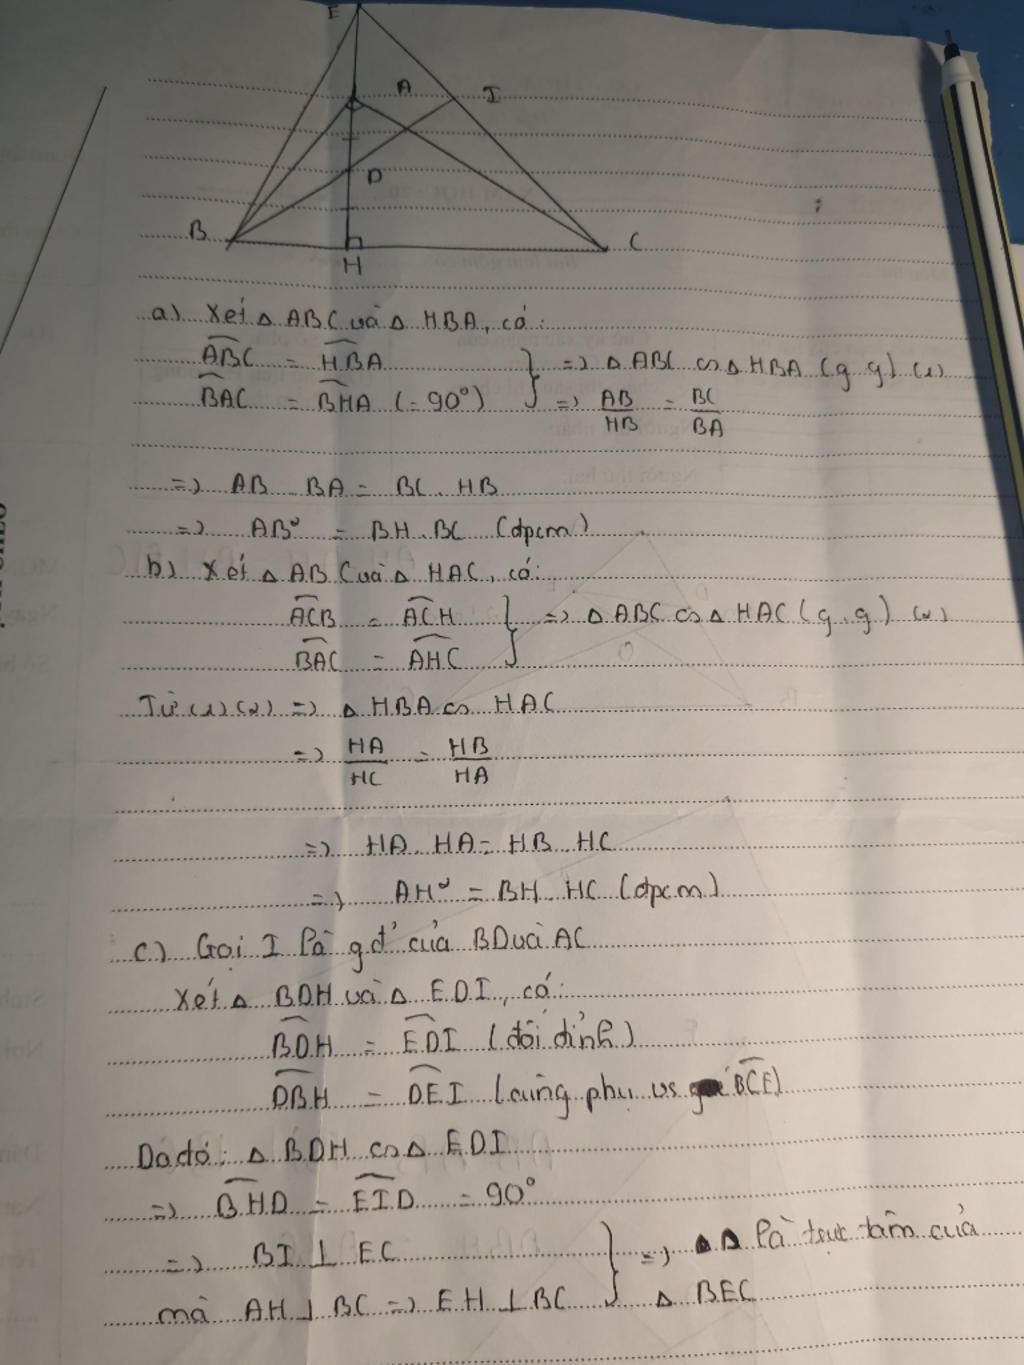 E
A I
D
B C
H
a) Xét Δ ABC và Δ HBA, có:
ABC = HBA } => Δ ABC ∽ Δ HBA (g g) (1)
BAC = BHA (= 90°) => AB/HB = BC/BA
=> AB BA = BC . HB
=> AB² = BH . BC (đpcm)
b) Xét Δ ABC và Δ HAC, có:
ACB = ACH } => Δ ABC ∽ Δ HAC (g.g) (2)
BAC = AHC
Từ (1) (2) => Δ HBA ∽ HAC
=> HA/HC = HB/HA
=> HA . HA = HB . HC
=> AH² = BH . HC (đpcm)
c) Gọi I là gđ' của BD và AC
Xét Δ BDH và Δ EDI, có:
BDH = EDI (đối đỉnh)
DBH = DEI (cùng phụ vs BCE)
Do đó: Δ BDH ∽ Δ EDI
=> BHD = EID = 90°
=> BI ⊥ EC } => D là trực tâm của
mà AH ⊥ BC => EH ⊥ BC Δ BEC